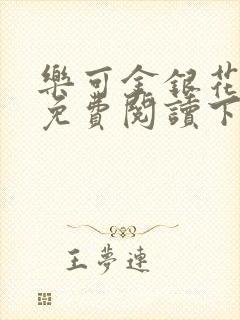 樂可金銀花
免費閱讀下
王夢連